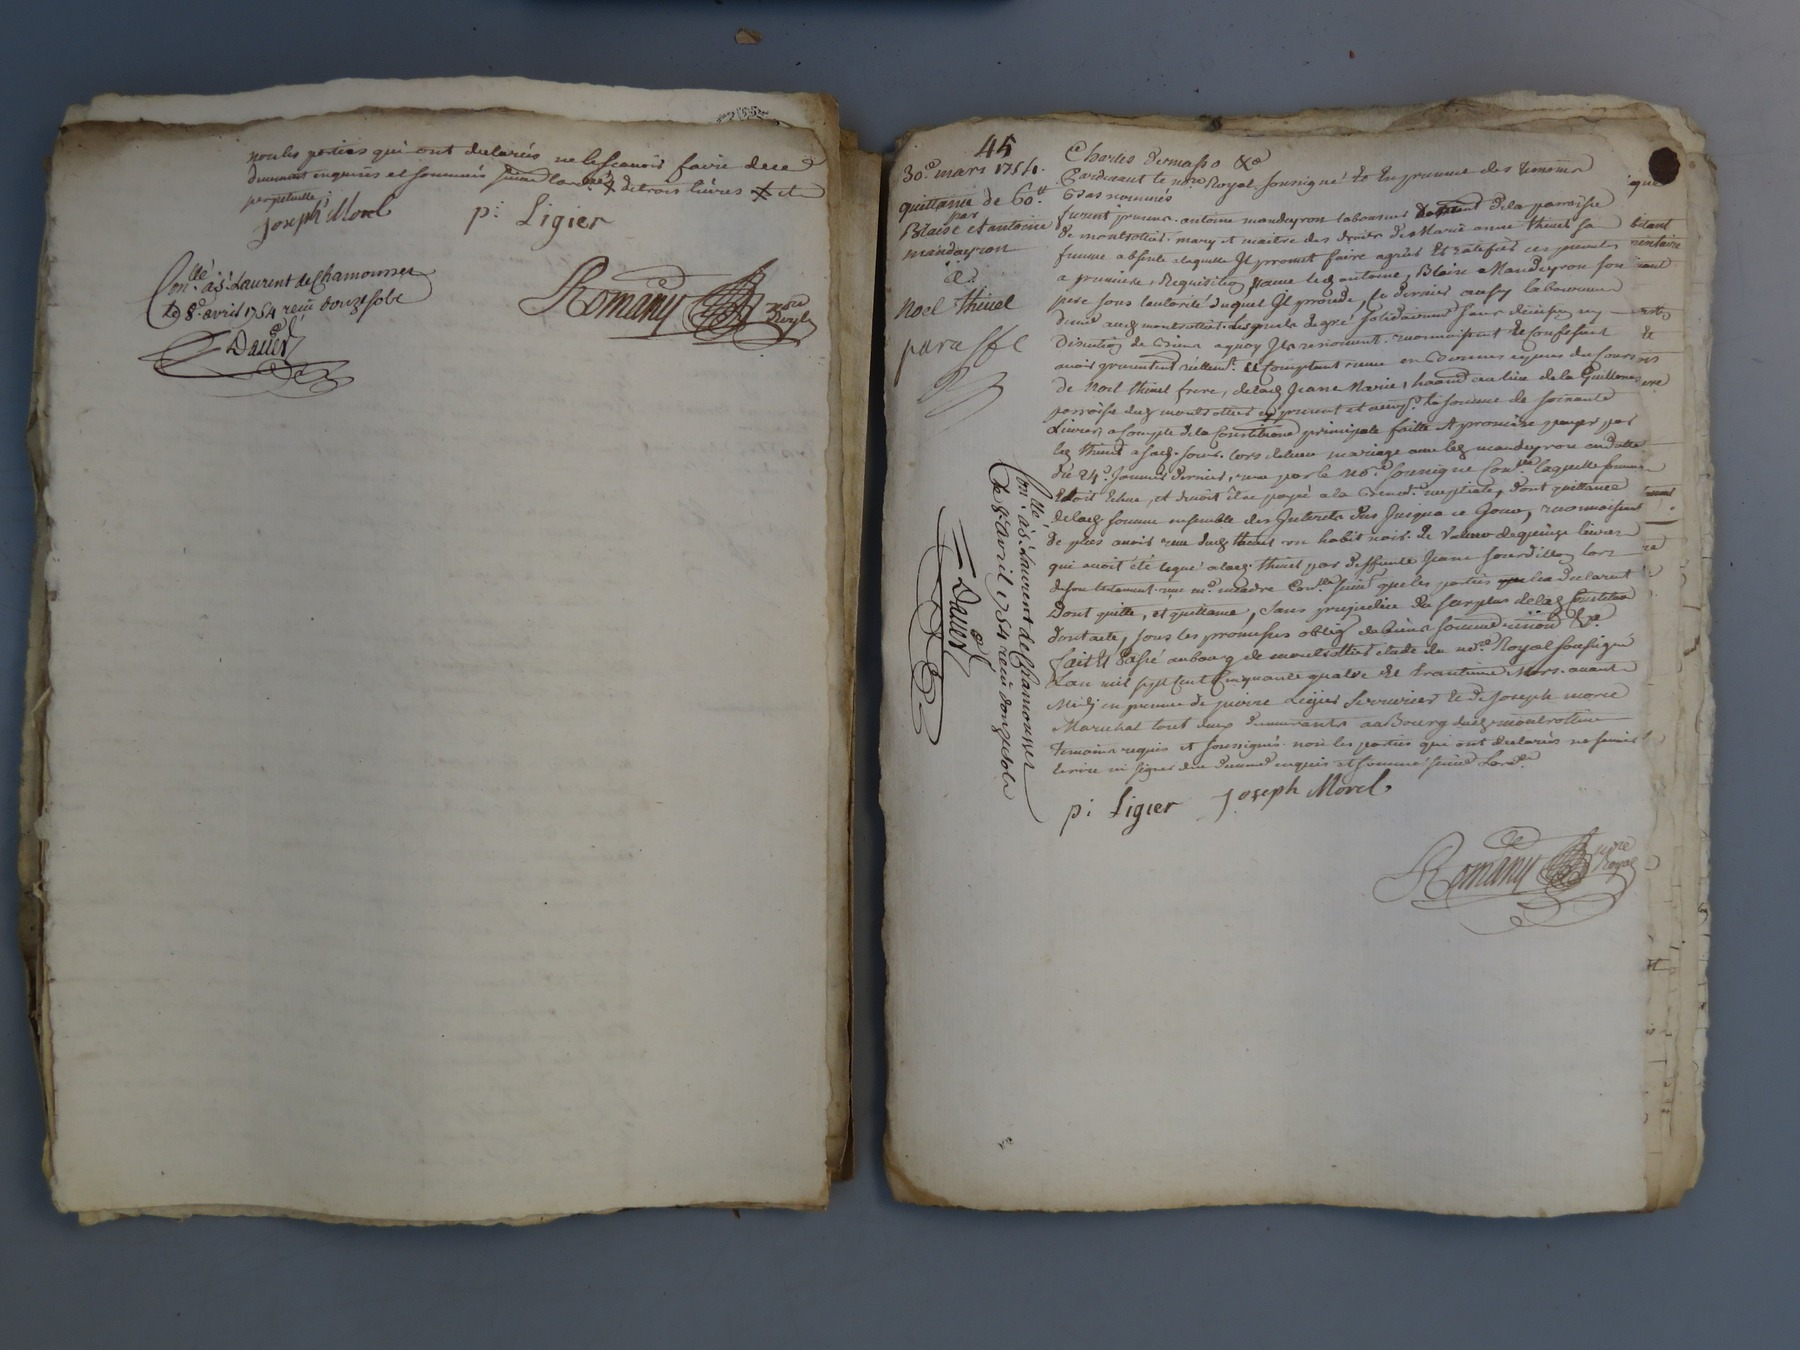 non les parties qui ont declarés ne le scavoir faire de ce
duement enquises et sommés suivant lord.ce ⨯ de trois livres ⨯ et
perpetuelle
joseph Morel
p: Ligier
Con.llé à S.t Laurent de Chamousset
le 8.e avril 1754 reçu douze sols
Daverd
Romany n.re Royal
45
30.e mars 1754.
quittance de 60.tt
par
Blaise et antoine
mandeyron
a
Noel thivel
paraffe
Charles Demasso &.a
Pardevant le no.re Royal soussigné et En presence des temoins
Bas nommés
furent presens antoine mandeyron laboureur de la parroisse
de montrottier mary et maitre des droits de Marie anne thivel sa
femme absente a laquelle Il promet faire agréer Et ratefier ces presentes
a premiere Requisition, avec led. antoine, Blaise Mandeyron son
pere sous lautorité duquel Il procede, ce dernier aussy laboureur
dud. montrottier lesquels de gré solidairement sans division ny
Discution de Biens a quoy Ils renoncent. reconnoissent Et Confessent
avoir presentement réellem.t Et Comptant receu en Bonnes especes du Cours
de Noel thivel frere, de lad. Jeane Marie, habitant au lieu de la Guillerme
parroisse dud. montrottier cy present et accep.t la somme de soixante
Livres, a Compte de la Constitution principale faitte Et promise payer par
led. thivel a sad. soeur lors de leur mariage avec led. mandeyron en datte
du 24.e Janvier dernier, receu par le no.re soussigné Con.llé laquelle somme
Etoit Echue, et devoit être payée a la Bened.n nuptiale, dont quittance
de lad. somme ensemble des Interets dus Jusqua ce Jour, reconnoissent
de plus avoir receu dud. thivel un habit noir. De Valleur de quinze livres
qui avoit été legué a lad. thivel par deffunte Jeane sourdillon lors
de son testament receu m.e Con.llé suiv.t que les parties le declarent
Dont quitte, et quittance, sans prejudice du surplus de lad. Constitution
dont acte, sous les promesses oblig. de biens soumissions &.a
fait Et Passé au bourg de montrottier etude du no.re Royal soussigné
Lan mil sept Cent Cinquante quatre Et le trentieme Mars. avant
Midy en presence de pierre Ligier serrurier Et de Joseph morel
Marechal tout deux demeurants au Bourg dud. montrottier
temoins requis et soussignés. non les parties qui ont declarés ne scavoir
Ecrire ni signer de ce duement enquis et sommés suiv.t lord.ce
p: Ligier
joseph Morel
Romany n.re Royal
Con.llé à S.t Laurent de Chamousset
le 8.e avril 1754 reçu douze sols
Daverd